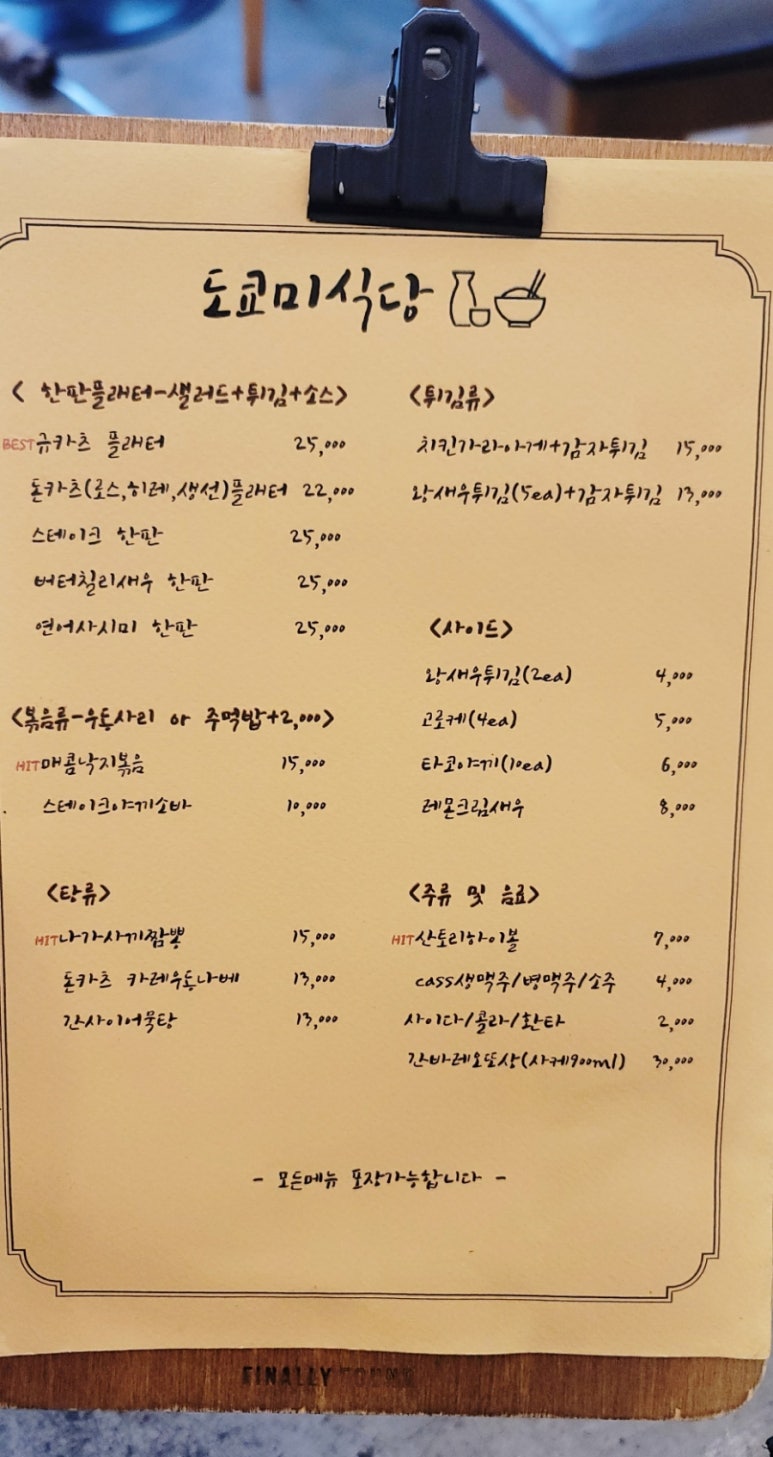 도쿄미식당
< 한판플래터-샐러드+튀김+소스>
BEST 규카츠 플래터 25,000
돈카츠(로스,히레,생선)플래터 22,000
스테이크 한판 25,000
버터칠리새우 한판 25,000
연어사시미 한판 25,000
<볶음류-우동사리 or 주먹밥+2,000>
HIT 매콤낙지볶음 15,000
스테이크야끼소바 10,000
<탕류>
HIT 나가사끼짬뽕 15,000
돈카츠 카레우동나베 13,000
간사이어묵탕 13,000
<튀김류>
치킨가라아게+감자튀김 15,000
왕새우튀김(5ea)+감자튀김 13,000
<사이드>
왕새우튀김(2ea) 4,000
고로케(4ea) 5,000
타코야끼(10ea) 6,000
레몬크림새우 8,000
<주류 및 음료>
HIT 산토리하이볼 7,000
cass생맥주/병맥주/소주 4,000
사이다/콜라/환타 2,000
간바레오또상(사케900ml) 30,000
- 모든메뉴 포장가능합니다 -
FINALLY